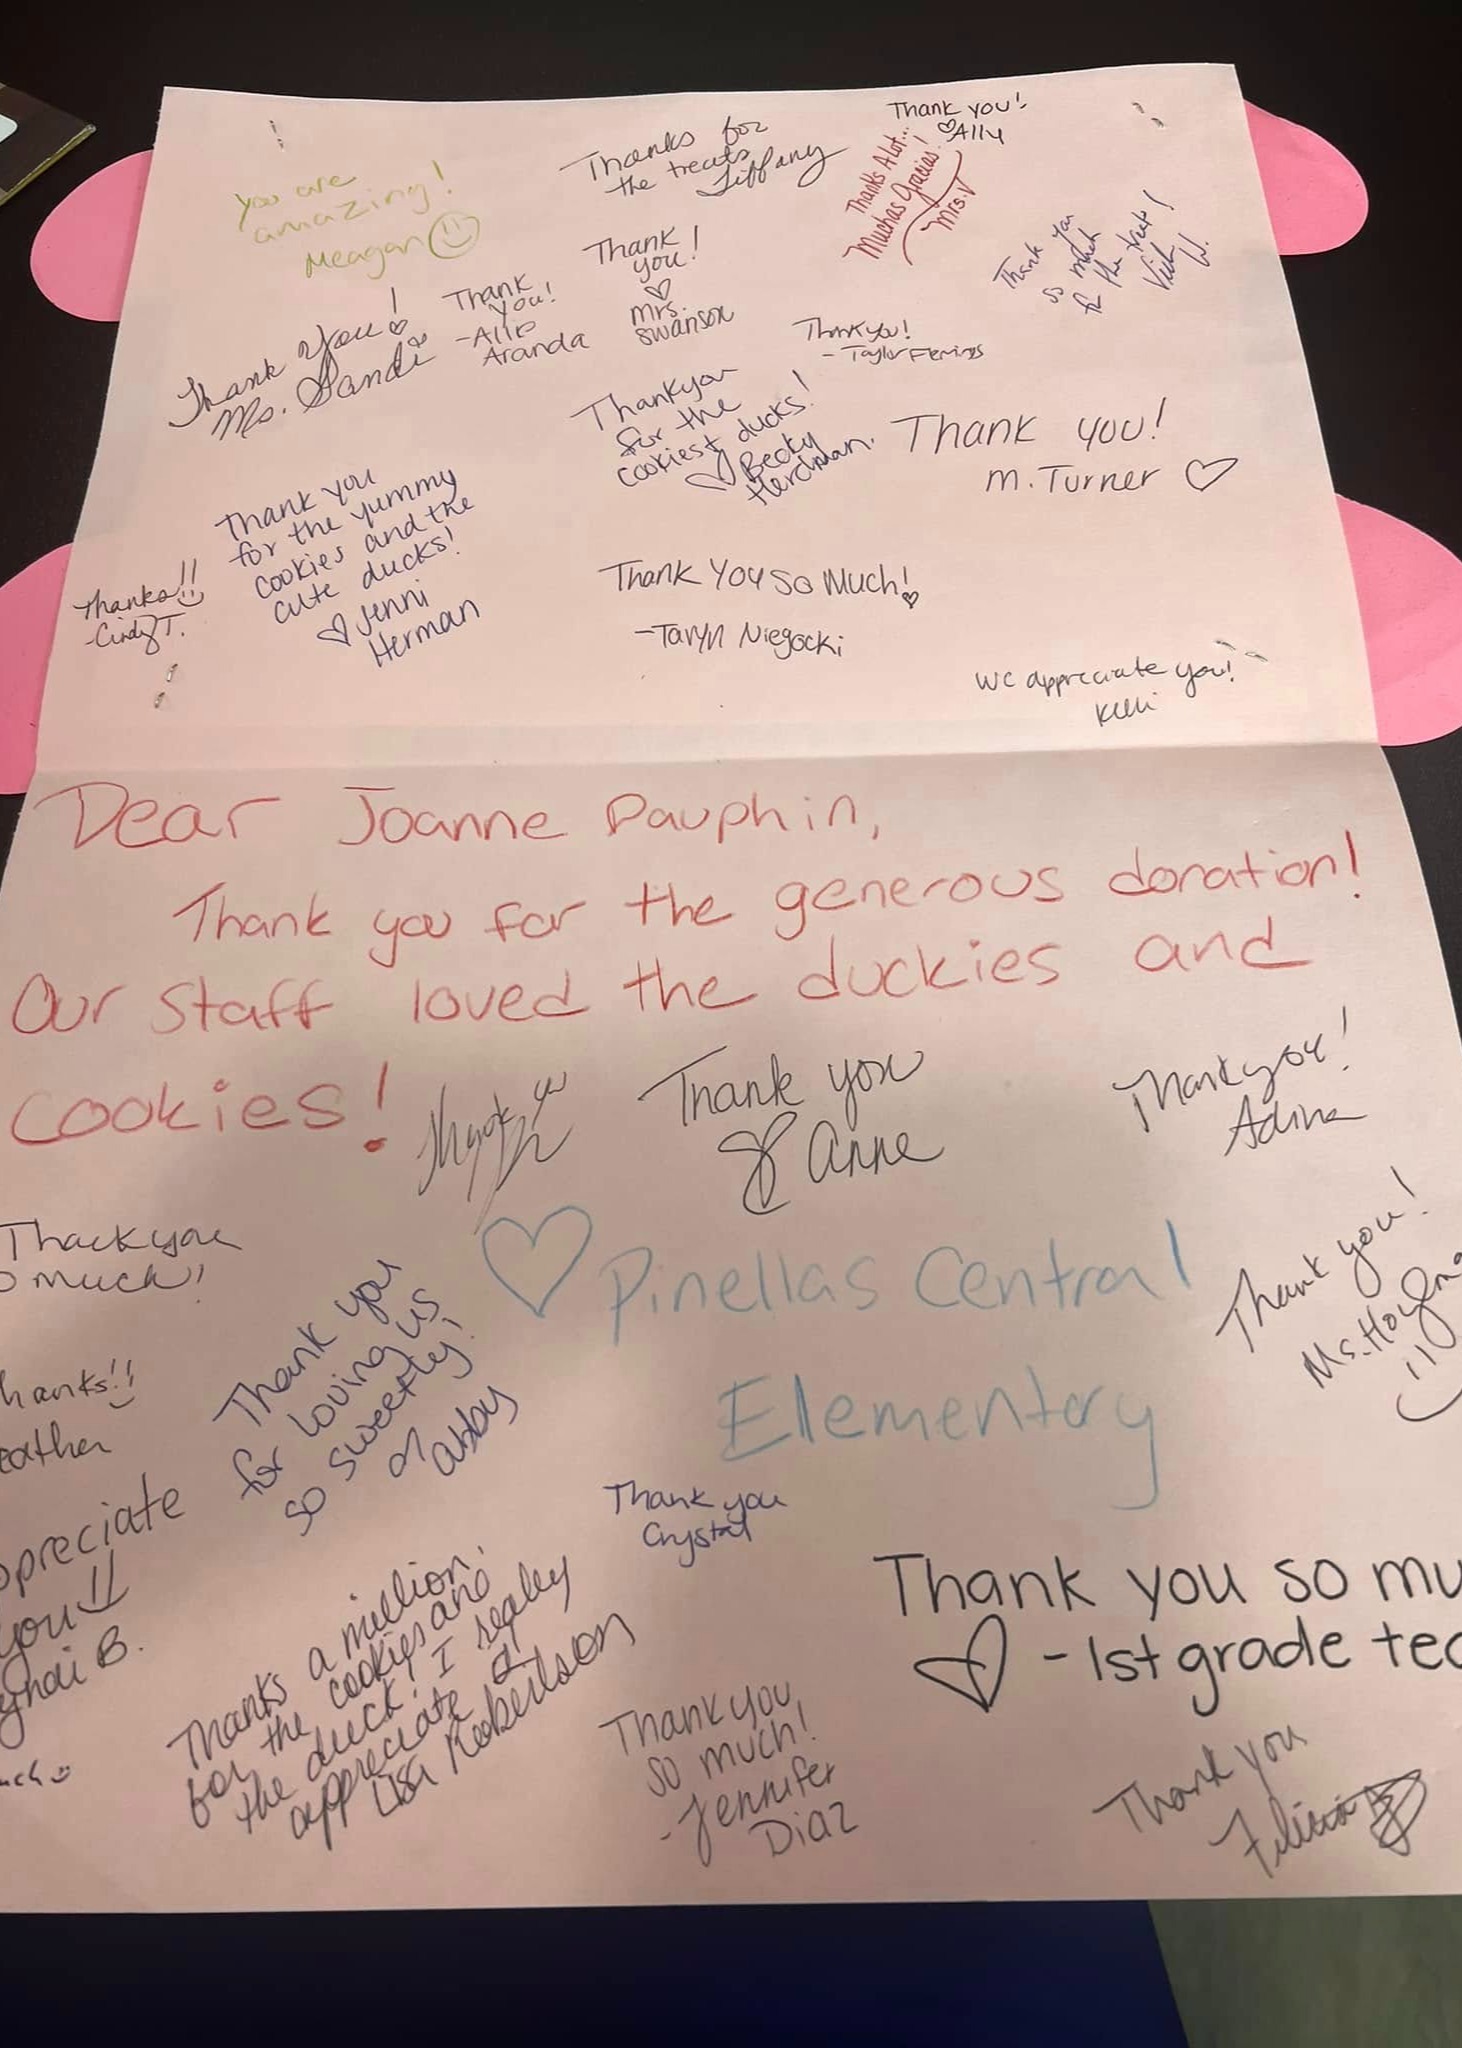 Thank you!
♡Ally
Thanks for
the treats
Tiffany
Thanks A lot...
Muchas Gracias!
Mrs. V
you are
amazing!
Meagan
Thank you
so much
for the treats!
W.
Thank
you!
♡
Mrs.
Swanson
Thank
you!
-Allie
Aranda
Thank you!
Ms. Sandi
Thank you!
- Taylor Flemings
Thankyou
for the
cookies + ducks!
♡ Becky
Herdman.
Thank you!
M. Turner ♡
Thank you
for the yummy
cookies and the
cute ducks!
♡ Jenni
Herman
Thanks!!
-Cindy T.
Thank you so Much!
-Taryn Niegocki
We appreciate you!
Kelli
Dear Joanne Dauphin,
Thank you for the generous donation!
Our staff loved the duckies and
cookies!
Thank you
Thank you
Anne
Thank you!
Adina
Thank you
much!
♡ Pinellas Central
Elementary
Thank you!
Ms.
Thank you
for loving us
so sweetly!
Abby
hanks!!
eather
Thank you
Crystal
preciate
you
B.
Thanks a million
for the cookies and
the duck! I really
appreciate it!
Lisa Robertson
Thank you so mu
♡ - 1st grade tea
Thank you
so much!
- Jennifer
Diaz
Thank you
Felicia